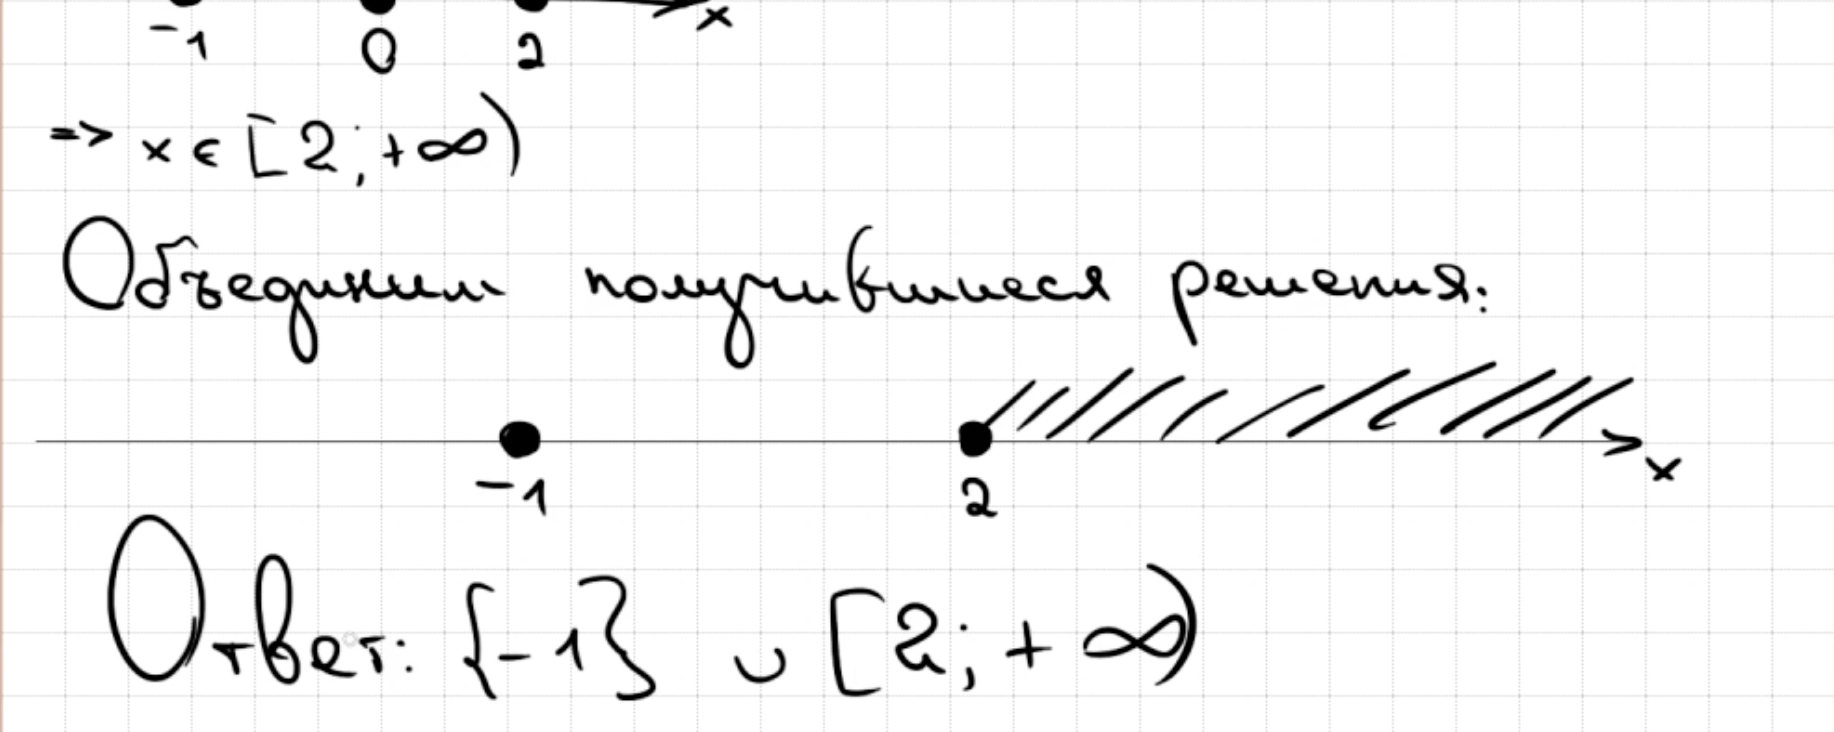 -1 0 2 x
=> x ∈ [2; +∞)
Объединим получившиеся решения:
-1 2 x
Ответ: {-1} ∪ [2; +∞)